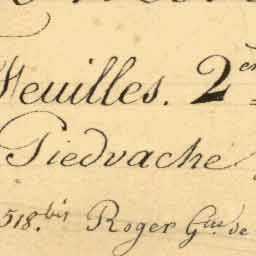 Feuilles. 2en
Piedvache
518.bis Roger Gme de